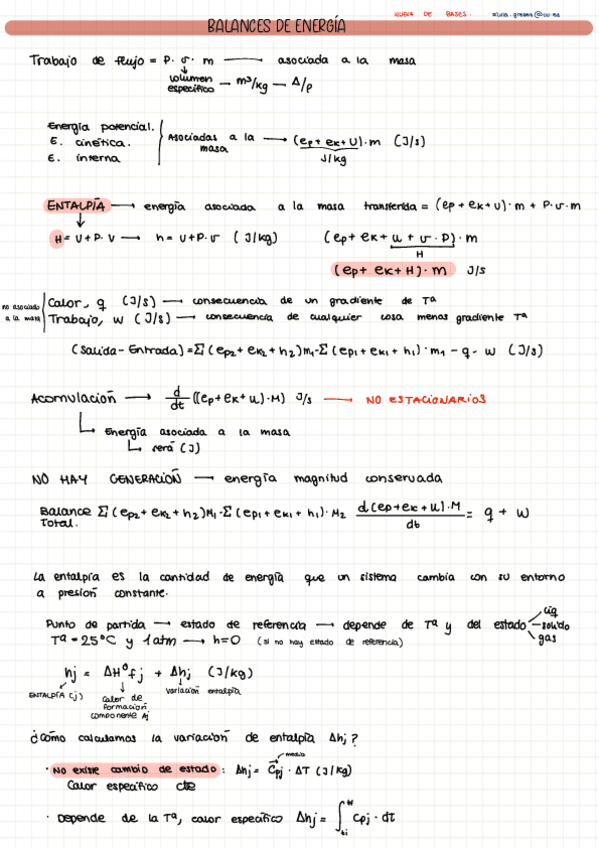 NUEVA DE BASES.
BALANCES DE ENERGÍA
Trabajo de flujo = P · v · m → asociada a la masa
volumen específico — m³/kg — Δ/ρ
Energía potencial.
E. cinética.
E. interna
Asociadas a la masa → (ep + ek + U) · m (J/s)
J/kg
ENTALPÍA → energía asociada a la masa transferida = (ep + ek + u) · m + P · v · m
H = U + P · V → h = U + P · v (J/kg) (ep + ek + u + v · P) · m
H
(ep + ek + H) · m J/s
no asociado a la masa
Calor, q (J/s) → consecuencia de un gradiente de Tª
Trabajo, w (J/s) → consecuencia de cualquier cosa menos gradiente Tª
(Salida - Entrada) = Σ (ep₂ + ek₂ + h₂) m₁ - Σ (ep₁ + ek₁ + h₁) · m₁ - q - w (J/s)
Acomulación → d/dt ((ep + ek + u) · M) J/s → NO ESTACIONARIOS
Energía asociada a la masa
será (J)
NO HAY GENERACIÓN → energía magnitud conservada
Balance Total. Σ (ep₂ + ek₂ + h₂) M₁ - Σ (ep₁ + ek₁ + h₁) · M₂ d(ep + ek + u) · M / dt = q + w
La entalpía es la cantidad de energía que un sistema cambia con su entorno
a presión constante.
Punto de partida → estado de referencia → depende de Tª y del estado liq sólido gas
Tª = 25ºC y 1 atm → h=0 (si no hay estado de referencia)
hj = ΔHºfj + Δhj (J/kg)
ENTALPÍA (j) calor de formación componente Aj variación entalpía
¿Cómo calculamos la variación de entalpía Δhj?
media
· No existe cambio de estado: Δhj = Cpj · ΔT (J/kg)
Calor específico cte
· Depende de la Tª, calor específico Δhj = ∫ti tf Cpj · dt